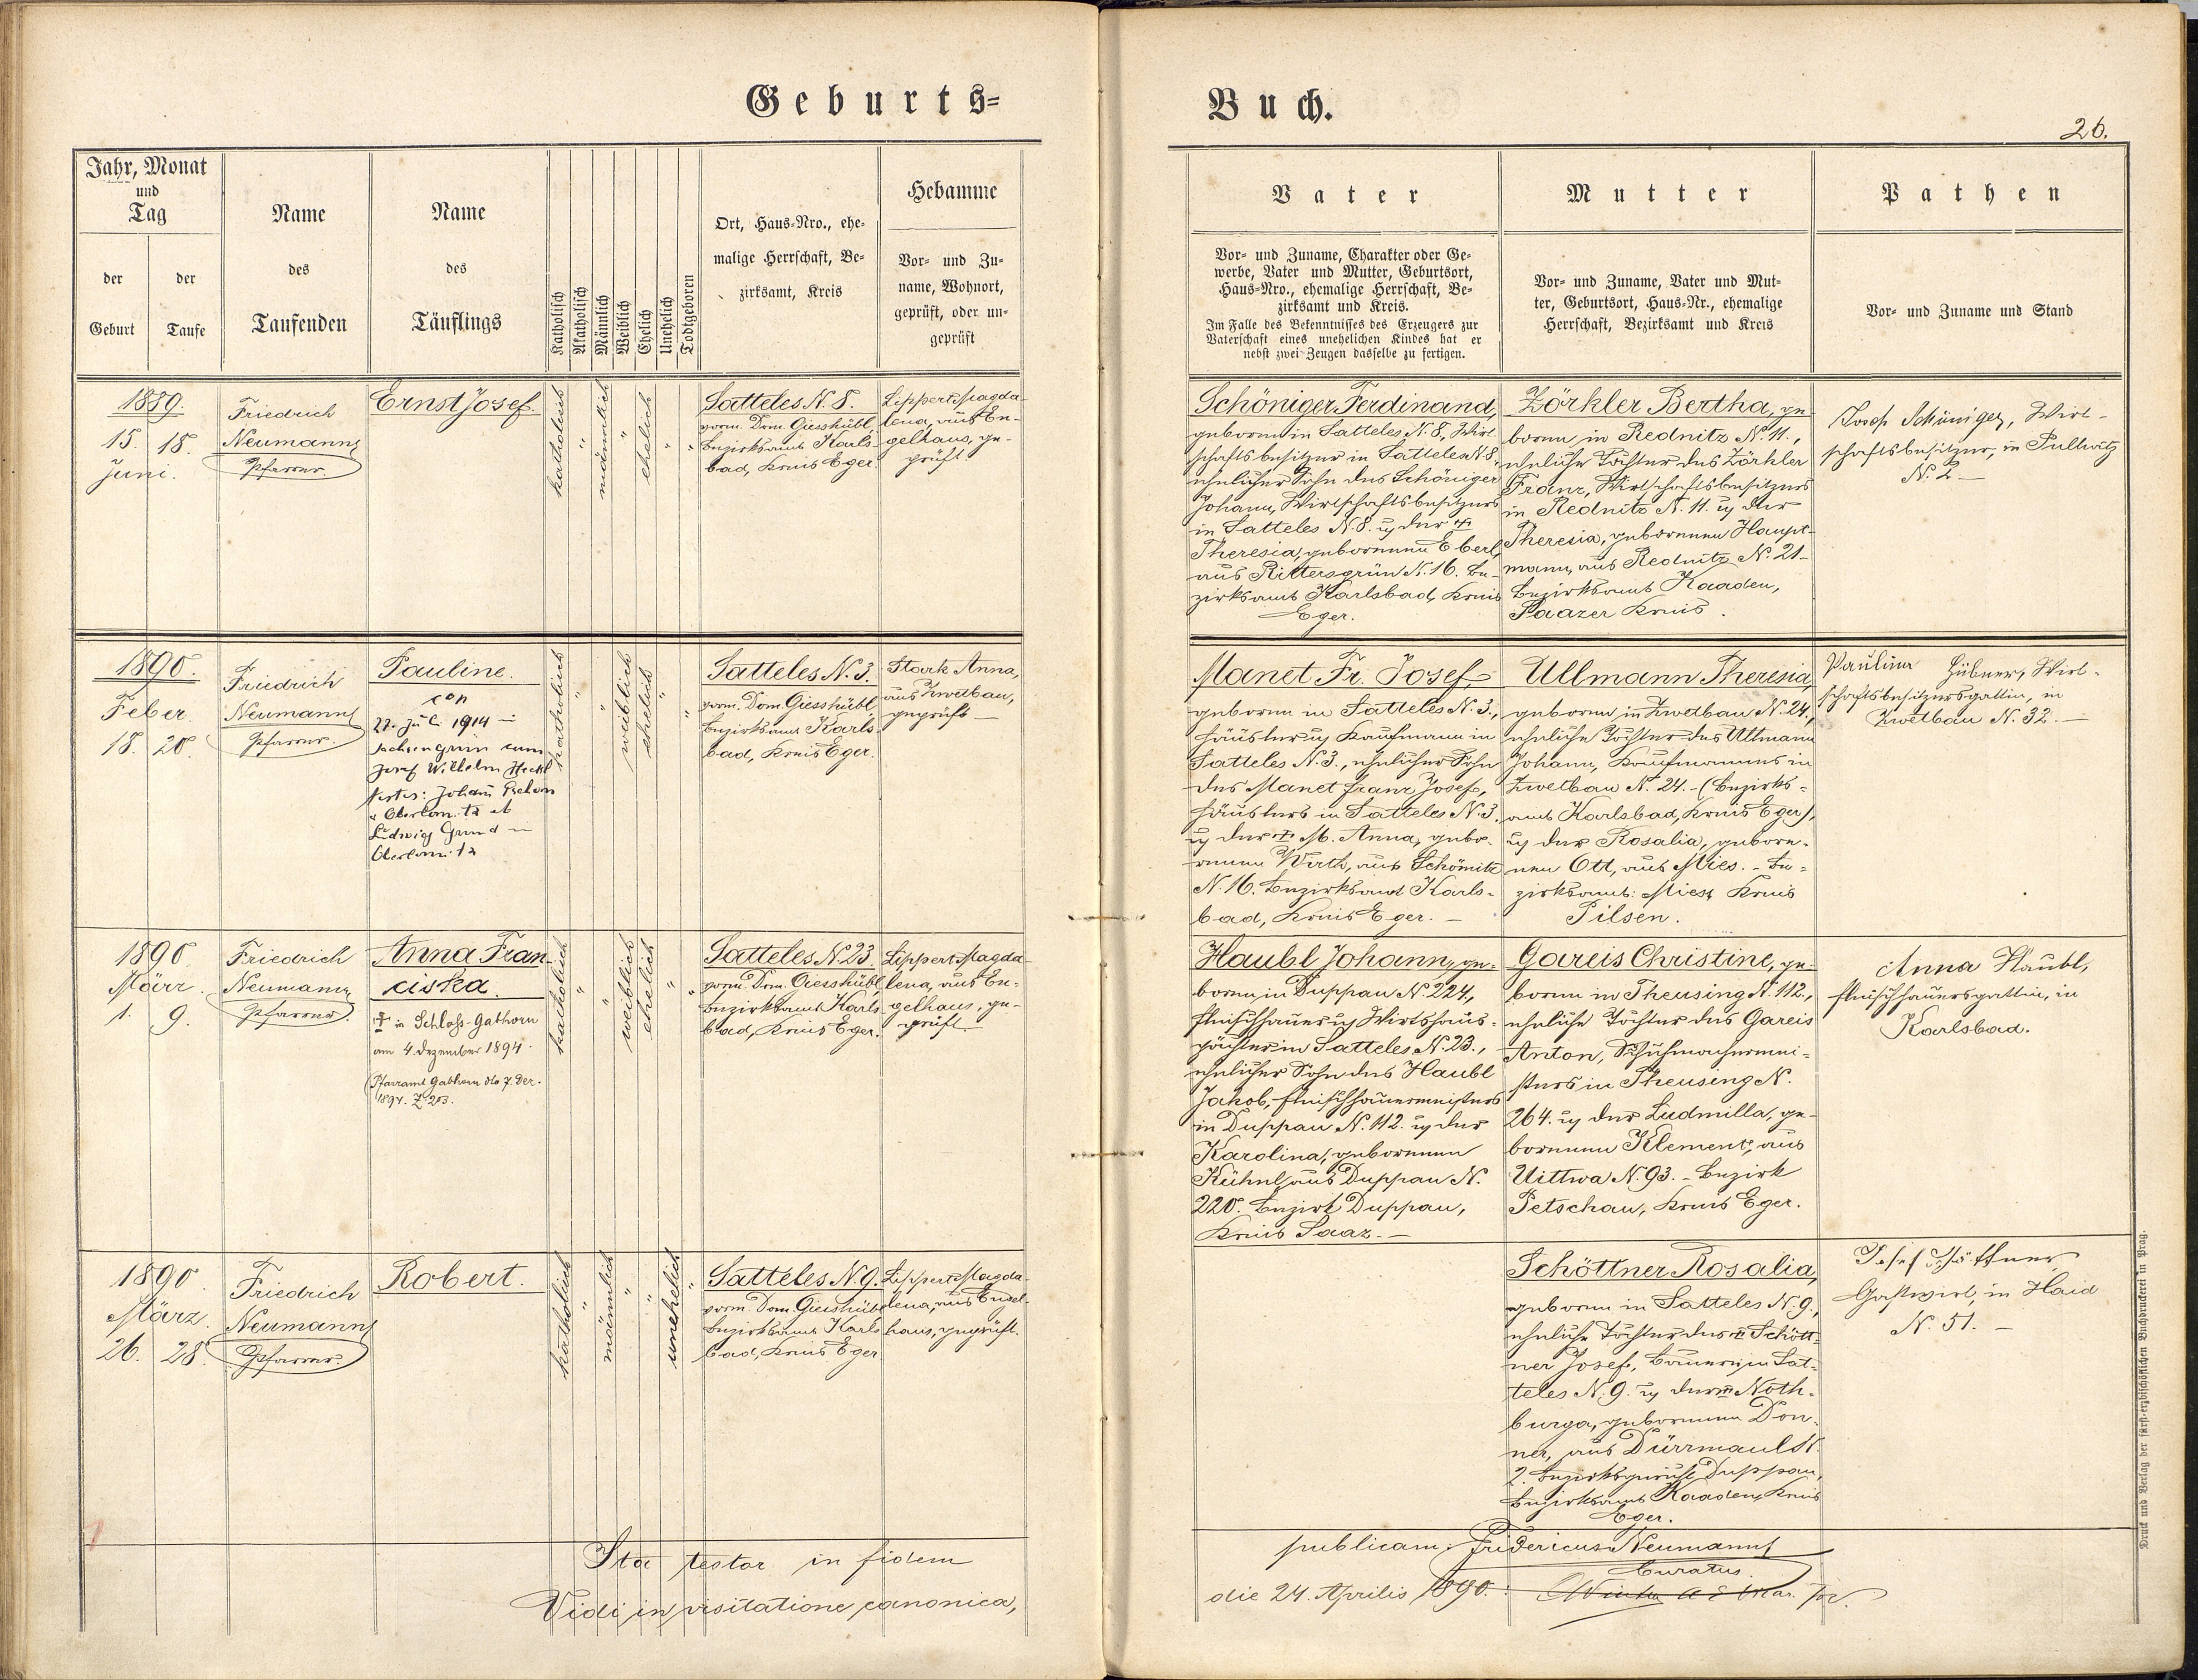 Geburts=
Jahr, Monat
und
Tag
der
Geburt
der
Taufe
Name
des
Taufenden
Name
des
Täuflings
Katholisch
Akatholisch
Männlich
Weiblich
Ehelich
Unehelich
Todtgeboren
Ort, Haus=Nro., ehe=
malige Herrschaft, Be=
zirksamt, Kreis
Hebamme
Vor= und Zu=
name, Wohnort,
geprüft, oder un=
geprüft
1889.
15. 18.
Juni.
Friedrich
Neumann,
Pfarrer.
Ernst Josef.
katholisch
"
männlich
"
ehelich
"
"
Satteles N. 8.
vorm. Dom. Giesshübl,
Bezirksamt Karls-
bad, Kreis Eger.
Lippert Magda-
lena, aus En-
gelhaus, ge-
prüft
1890.
Feber
18. 20.
Friedrich
Neumann,
Pfarrer.
Pauline.
cop
27. Juli 1914 in
Sachsengrün cum
Josef Wilhelm Heckl
Testes: Johann
Ludwig Grund
katholisch
"
"
weiblich
ehelich
"
Satteles N. 3.
vorm. Dom. Giesshübl
Bezirksamt Karls-
bad, Kreis Eger.
Stark Anna,
aus Zwetbau,
geprüft —
1890.
März.
1. 9.
Friedrich
Neumann,
Pfarrer.
Anna Fran-
ciska.
† in Schloss-Gabhorn
am 4. Dezember 1894.
(Pfarramt Gabhorn dto 7. Dez.
1894. Z. 203.
katholisch
"
"
weiblich
ehelich
"
"
Satteles N. 23.
vorm. Dom. Giesshübl,
Bezirksamt Karls-
bad, Kreis Eger.
Lippert Magda-
lena, aus En-
gelhaus, ge-
prüft
1890.
März.
26. 28.
Friedrich
Neumann,
Pfarrer.
Robert.
katholisch
"
männlich
"
"
unehelich
"
Satteles N. 9.
vorm. Dom. Giesshübl
Bezirksamt Karls-
bad, Kreis Eger
Lippert Magda-
lena, aus Engel-
haus, geprüft.
Ita testor in fidem
Vidi in visitatione canonica,
Buch.
26.
Vater
Vor= und Zuname, Charakter oder Ge=
werbe, Vater und Mutter, Geburtsort,
Haus=Nro., ehemalige Herrschaft, Be=
zirksamt und Kreis.
Im Falle des Bekenntnisses des Erzeugers zur
Vaterschaft eines unehelichen Kindes hat er
nebst zwei Zeugen dasselbe zu fertigen.
Mutter
Vor= und Zuname, Vater und Mut=
ter, Geburtsort, Haus=Nr., ehemalige
Herrschaft, Bezirksamt und Kreis
Pathen
Vor= und Zuname und Stand
Schöniger Ferdinand,
geboren in Satteles N. 8, Wirt-
schaftsbesitzer in Satteles N. 8,
ehelicher Sohn des Schöniger
Johann, Wirtschaftsbesitzers
in Satteles N. 8. u. der †
Theresia, geborenen Eberl,
aus Rittersgrün N. 16. Be-
zirksamt Karlsbad, Kreis
Eger.
Zörkler Bertha, ge-
boren in Rednitz N. 11.,
eheliche Tochter des Zörkler
Franz, Wirtschaftsbesitzers
in Rednitz N. 11. u. der
Theresia, geborenen Haupt-
mann, aus Rednitz N. 21-
Bezirksamt Kaaden,
Saazer Kreis.
Josef Schöniger, Wirt-
schaftsbesitzer, in Pullwitz
N. 2 —
Manet Fr. Josef,
geboren in Satteles N. 3.,
Häusler u. Kaufmann in
Satteles N. 3., ehelicher Sohn
des Manet Franz Josef,
Häuslers in Satteles N. 3.
u. der † M. Anna, gebo-
renen Wirth, aus Schömitz
N. 16. Bezirksamt Karls-
bad, Kreis Eger. —
Ullmann Theresia,
geboren in Zwetbau N. 24.,
eheliche Tochter des Ullmann
Johann, Kaufmanns in
Zwetbau N. 24. - (Bezirks-
amt Karlsbad, Kreis Eger),
u. der Rosalia, gebore-
nen Ott, aus Mies. - Be-
zirksamt: Mies, Kreis
Pilsen.
Paulina Hübner, Wirt-
schaftsbesitzersgattin, in
Zwetbau N. 32. —
Haubl Johann, ge-
boren in Duppau N. 224,
Fleischhauer u. Wirtshaus-
pächter in Satteles N. 23.,
ehelicher Sohn des Haubl
Jakob, Fleischhauermeisters
in Duppau N. 112. u. der
Karolina, geborenen
Kühnl, aus Duppau N.
220. Bezirk Duppau,
Kreis Saaz. —
Gareis Christine, ge-
boren in Theusing N. 112.,
eheliche Tochter des Gareis
Anton, Schuhmachermei-
sters in Theusing N.
264. u. der Ludmilla, ge-
borenen Klement, aus
Uittwa N. 93. - Bezirk
Petschau, Kreis Eger.
Anna Haubl,
Fleischhauersgattin, in
Karlsbad.
Schöttner Rosalia,
geboren in Satteles N. 9.,
eheliche Tochter des † Schött-
ner Josef, Bauers in Sat-
teles N. 9. u. der Noth-
burga, geborenen Don-
ner, aus Dürrmaul N.
2. Bezirksgericht Duppau,
Bezirksamt Kaaden, Kreis
Eger.
Josef Schöttner,
Gastwirt, in Haid
N. 51. —
publicam. Fridericus Neumann,
Curatus.
die 24. Aprilis 1890.
Druck und Verlag der fürst=erzbischöflichen Buchdruckerei in Prag.